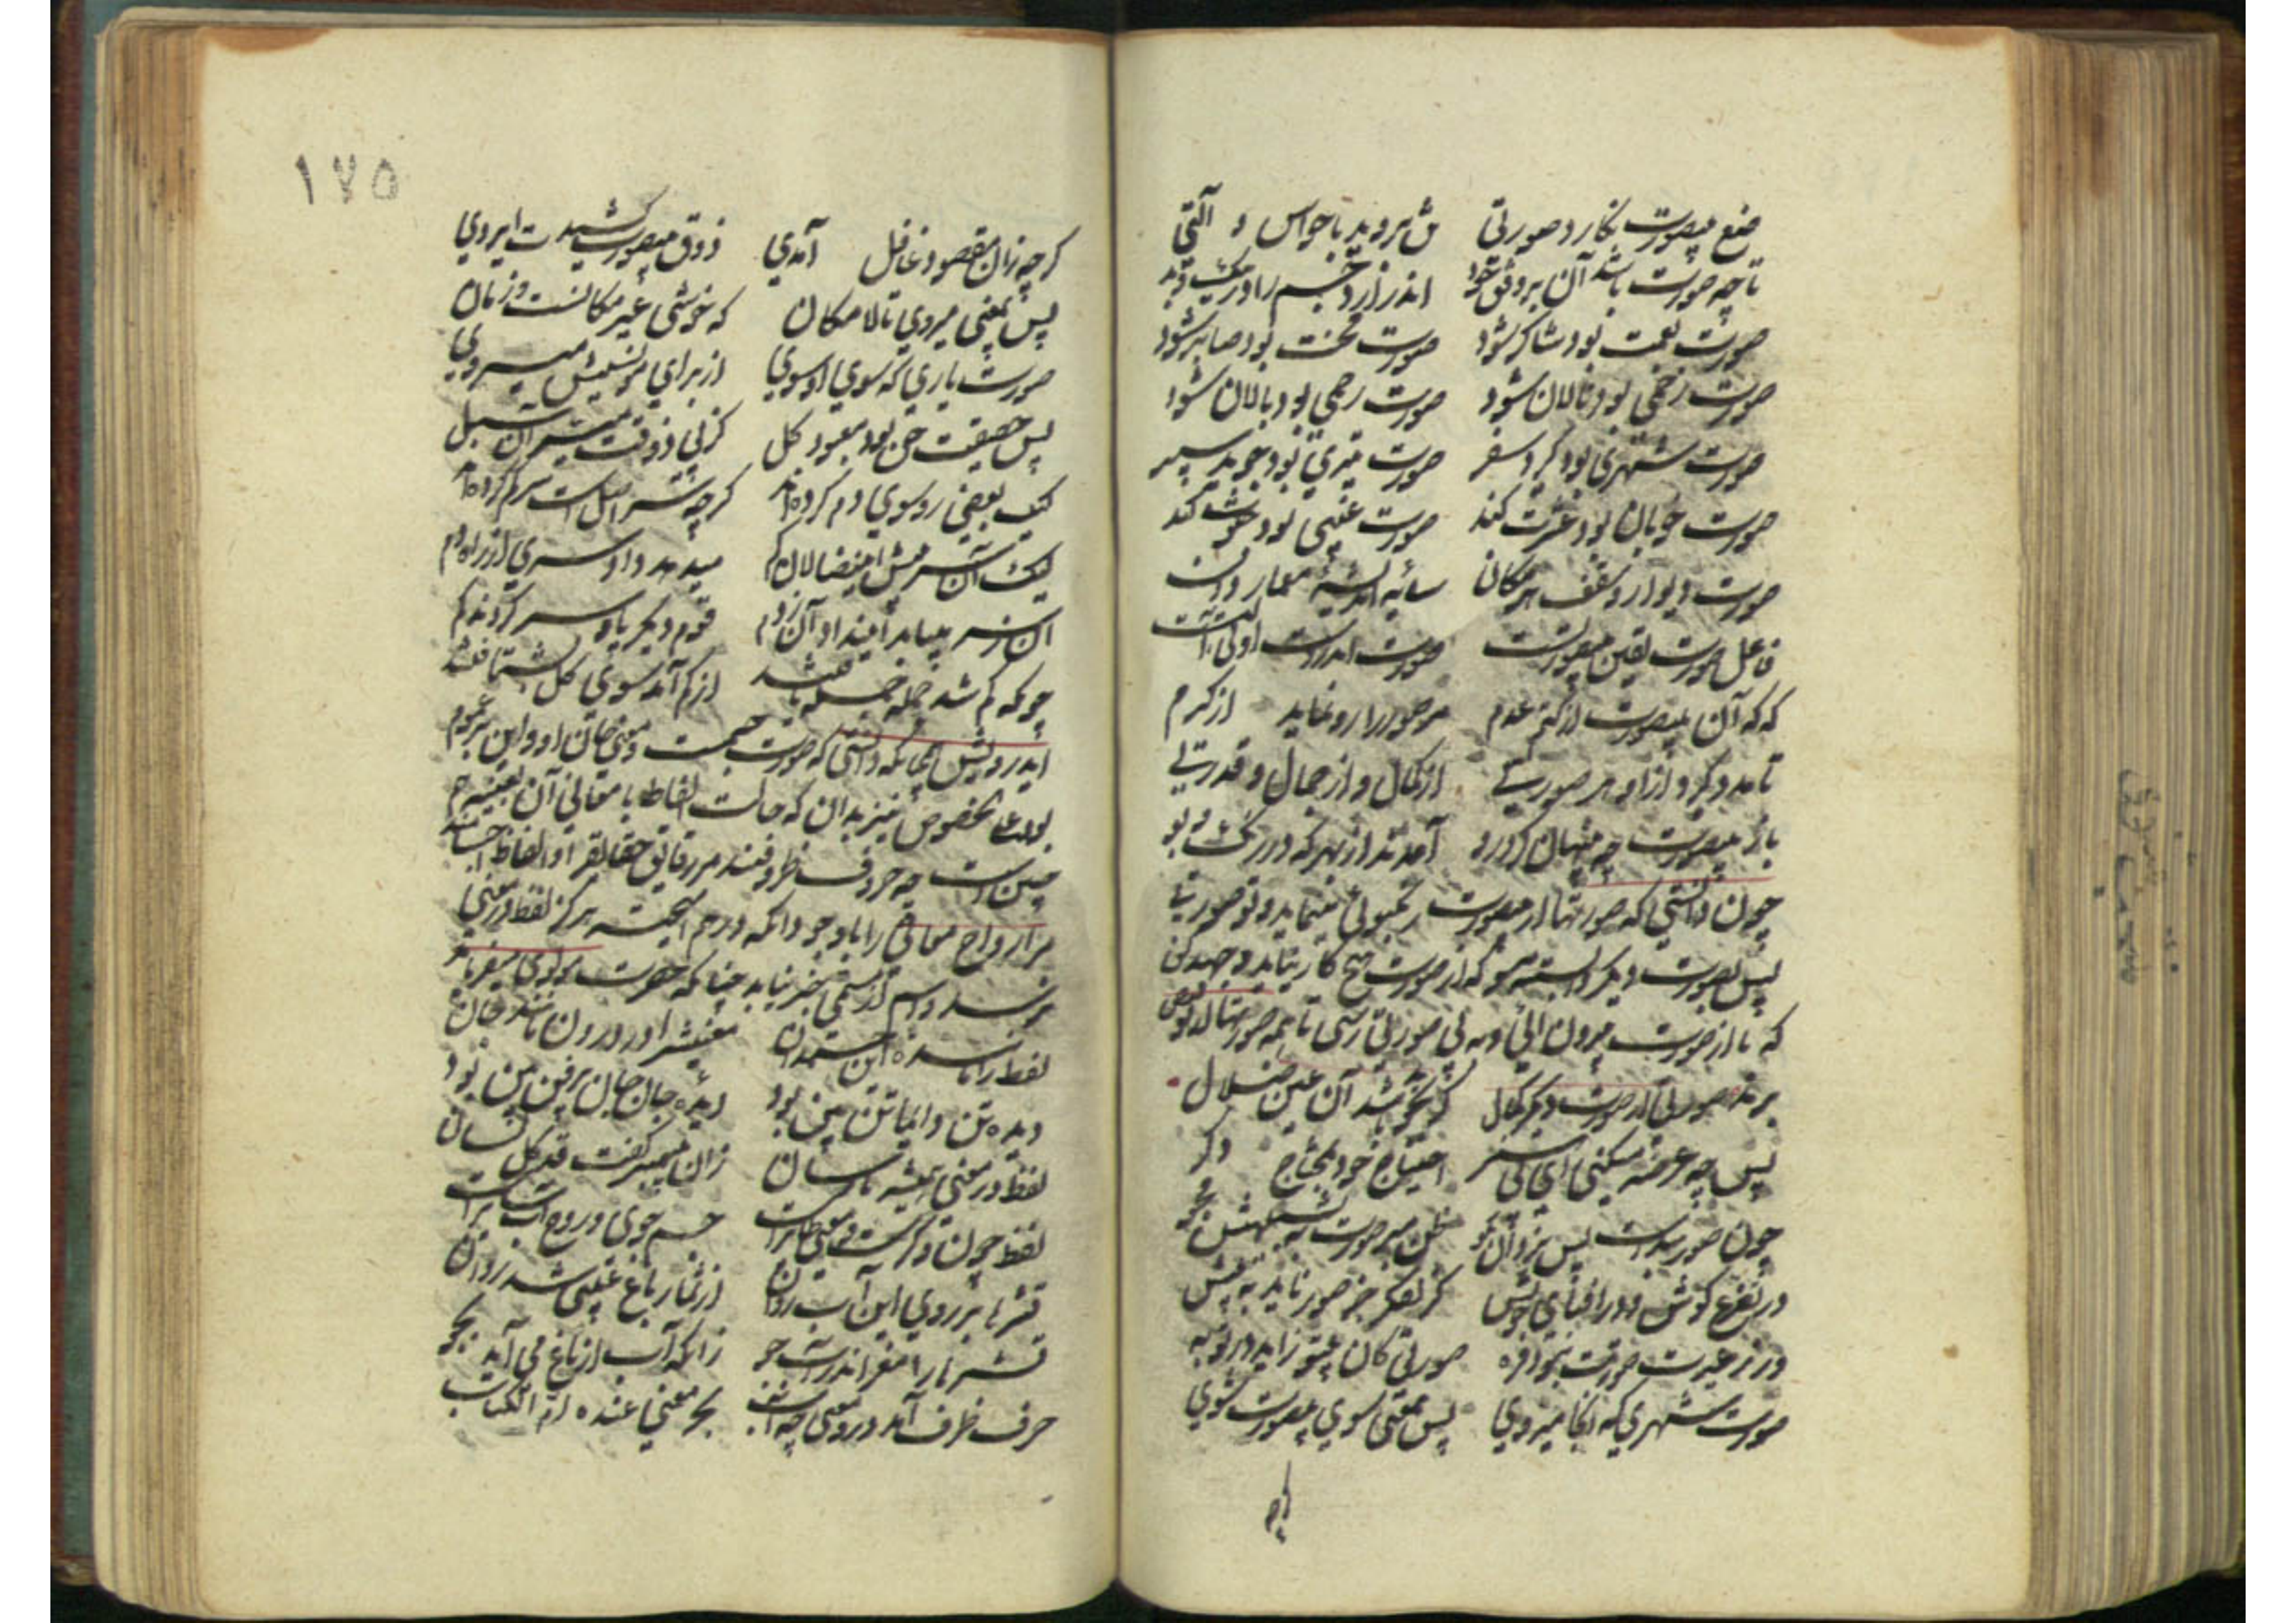 صنع بیصورت بکارد صورتی تن بروید با حواس و آلتی
تا چه صورت باشد آن بر وفق خود اندر آرد جسم را در نیک و بد
صورت نعمت بود شاکر شود صورت محنت بود صابر شود
صورت زخمی بود نالان شود صورت رحمی بود بالان شود
صورت شهری بود گیرد سفر صورت تیری بود جوید سپر
صورت خوبان بود عشرت کند صورت غیبی بود خلوت کند
صورت دیوار و سقف هر مکان سایه اندیشه معمار دان
فاعل صورت یقین بیصورتست صورت اندر دست او آلتست
که که آن بیصورت از کتم عدم مر صور را رو نماید از کرم
تا مدد گیرد ازو هر صورتی از کمال و از جمال و قدرتی
باز بیصورت چو پنهان کرد رو آمدند از بهر کد در رنگ و بو
چون دانستی که صورتها از بیصورت
پس بصورت دیگر وابسته مشو که از صورت هیچ کار نیاید و جهد کن
که تا از صورت بیرون آئی و به بی صورتی رسی تا همه صورتها
صورتی از صورت دیگر کمال گر بجوید باشد آن عین ضلال
پس چه عرضه میکنی ای بی گهر احتیاج خود بمحتاج دگر
چون صور بنده است پس بر یزدان مگو ظن مبر صورت به تشبیهش مجو
در تضرع کوش و در افنای خویش کز تفکر جز صور ناید به پیش
ور ز غیرت صورت نبود فره صورتی کان بیتو زاید در تو به
صورت شهری که آنجا میروی پس بمعنی سوی بیصورت شوی
گرچه
۱۷۵
گرچه زان مقصود غافل آمدی ذوق بیصورت کشیدت ای روی
پس بمعنی میروی تا لامکان که خوشی غیر مکانست و زمان
صورت یاری که سوی او شوی از برای مونسیش میروی
پس حقیقت حق بود معبود کل کز پی ذوقست سیران سبل
لیک بعضی رو سوی دم کرده‌اند گرچه سر اصل است سر گم کرده‌اند
لیک آن سر پیش این ضالان گم میدهد داد سری از راه دم
آن ز سر میباید این داد آن ز دم قوم دیگر پا و سر کردند گم
چونکه گم شد جمله جمله یافتند از کم آمد سوی کل بشتافتند
ای درویش همچنانکه دانستی که صورت جسمست و معنی جان او و این
نیز بدان که حالت الفاظ با معانی آن بعینه هم
چنین است چه حروف ظروفند مر رقایق حقایق را و الفاظ اجسامند
مر ارواح معانی را با وجود آنکه درهم آمیخته هرگز لفظ در معنی
نرسد و جسم از هستی خبر نیابد چنانکه حضرت مولوی میفرماید
لفظ را ماننده این جسم دان معنیش را در درون مانند جان
دیده تن دایما تن بین بود دیده جان جان پرفن بین بود
لفظ در معنی همیشه نارسان زان پیمبر گفت قد کل لسان
لفظ چون وکرست و معنی طایرست جسم جوی و روح آب سایرست
قشرها بر روی این آب روان از ثمار باغ غیبی شد روان
قشرها را مغز اندر آب جو زانکه آب از باغ می آید بجو
حرف ظرف آمد درو معنی چه آب بحر معنی عنده ام الکتاب